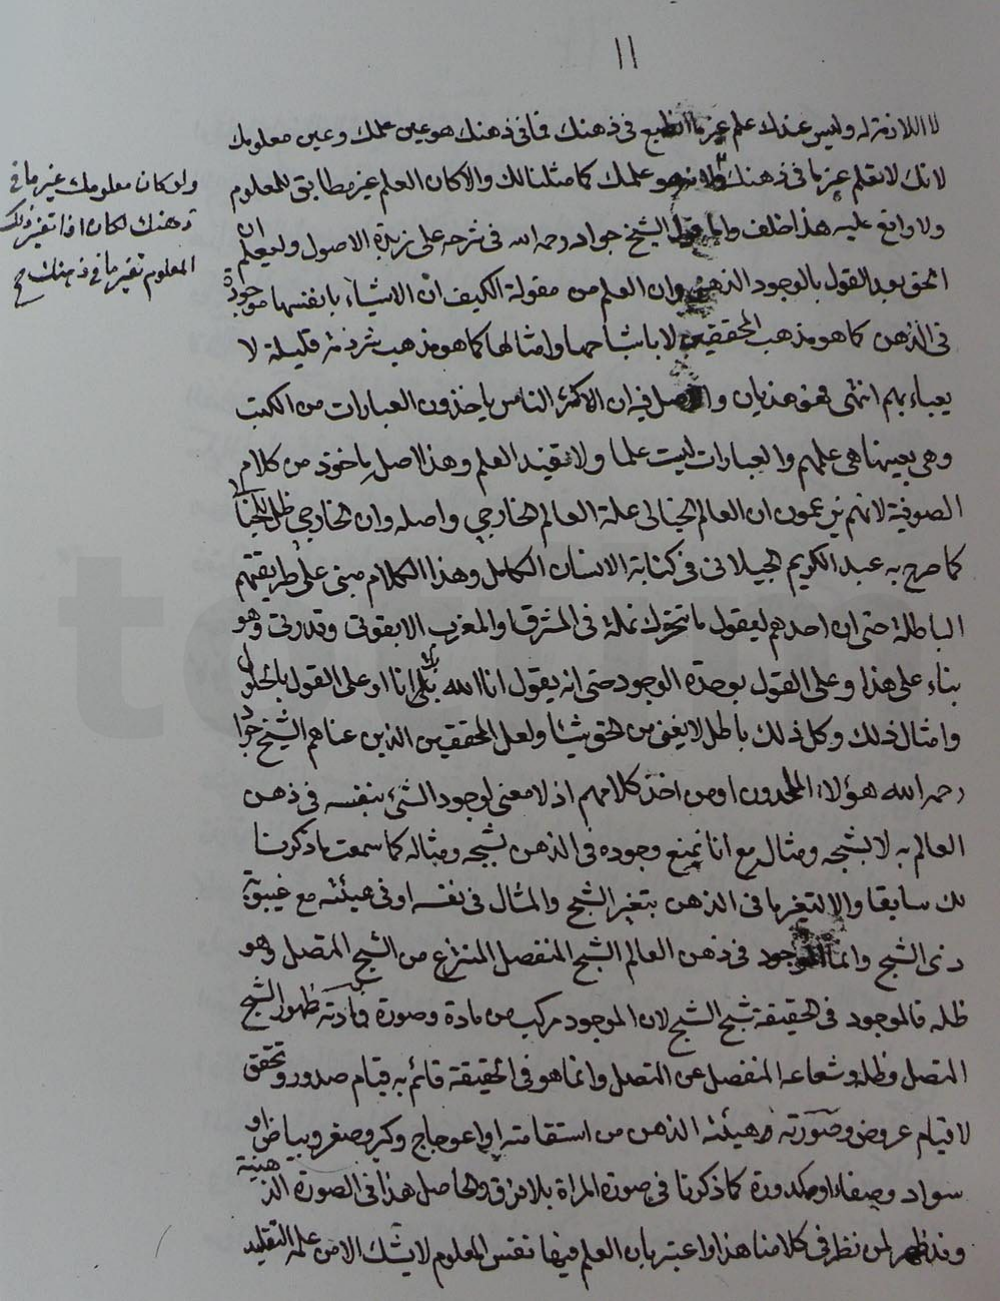 ١١
لا اللازمة له وليس عندك علم غير ما انطبع في ذهنك فما في ذهنك هو عين علمك وعين معلومك
لانك لا تعلم غير ما في ذهنك وهو علمك كما مثلنا لك والا لكان العلم غير مطابق للمعلوم
ولا واقع عليه هذا خلف واما قول الشيخ جواد رحمه الله في شرحه على زبدة الاصول وليعلم ان
الحق بعد القول بالوجود الذهني وان العلم من مقولة الكيف ان الاشياء بانفسها موجودة
في الذهن كما هو مذهب المحققين لا باشباحها وامثالها كما هو مذهب شرذمة قليلة لا
يعباء بهم انتهى فهو هذيان والاصل فيه ان اكثر الناس ياخذون العبارات من الكتب
وهي بعينها هي علمهم والعبارات ليست علما ولا تفيد العلم وهذا اصل ماخوذ من كلام
الصوفية لانهم يزعمون ان العالم الخيالي علة العالم الخارجي واصله وان الخارجي ظل للخيالي
كما صرح به عبد الكريم الجيلاني في كتابه الانسان الكامل وهذا الكلام مبني على طريقتهم
الباطلة حتى ان احدهم ليقول ما تتحرك نملة في المشرق او المغرب الا بقوتي وقدرتي وهو
بناء على هذا وعلى القول بوحدة الوجود حتى انه يقول انا الله بلا انا او على القول بالحلول
وامثال ذلك وكل ذلك باطل لا يغني من الحق شيئا ولعل المحققين الذين عناهم الشيخ جواد
رحمه الله هؤلاء الملحدون او من اخذ كلامهم اذ لا معنى لوجود الشئ بنفسه في ذهن
العالم به لا بشبحه ومثاله مع انا نمنع وجوده في الذهن بشبحه ومثاله كما سمعت ما ذكرنا
لك سابقا والا لتغير ما في الذهن بتغير الشبح والمثال في نفسه او في هيئته مع غيبوبة
ذي الشبح وانما الموجود في ذهن العالم الشبح المنفصل المنتزع من الشبح المتصل وهو
ظله فالموجود في الحقيقة شبح الشبح لان الموجود مركب من مادة وصورة فمادته ظهور الشبح
المتصل وظله وشعاعه المنفصل عن المتصل وانما هو في الحقيقة قائم به قيام صدور وتحقق
لا قيام عروض وصورته هيئة الذهن من استقامته او اعوجاج وكبر وصغر وبياض او
سواد وصفاء او كدورة كما ذكرنا في صورة المراة بلا فرق والحاصل هذا في الصورة الذهنية
وقد ظهر لمن نظر في كلامنا هذا واعتبر بان العلم فيها نفس المعلوم لا يشك الا من علمه التقليد
ولو كان معلومك غير ما في
ذهنك لكان اذا تغير ذلك
المعلوم تغير ما في ذهنك